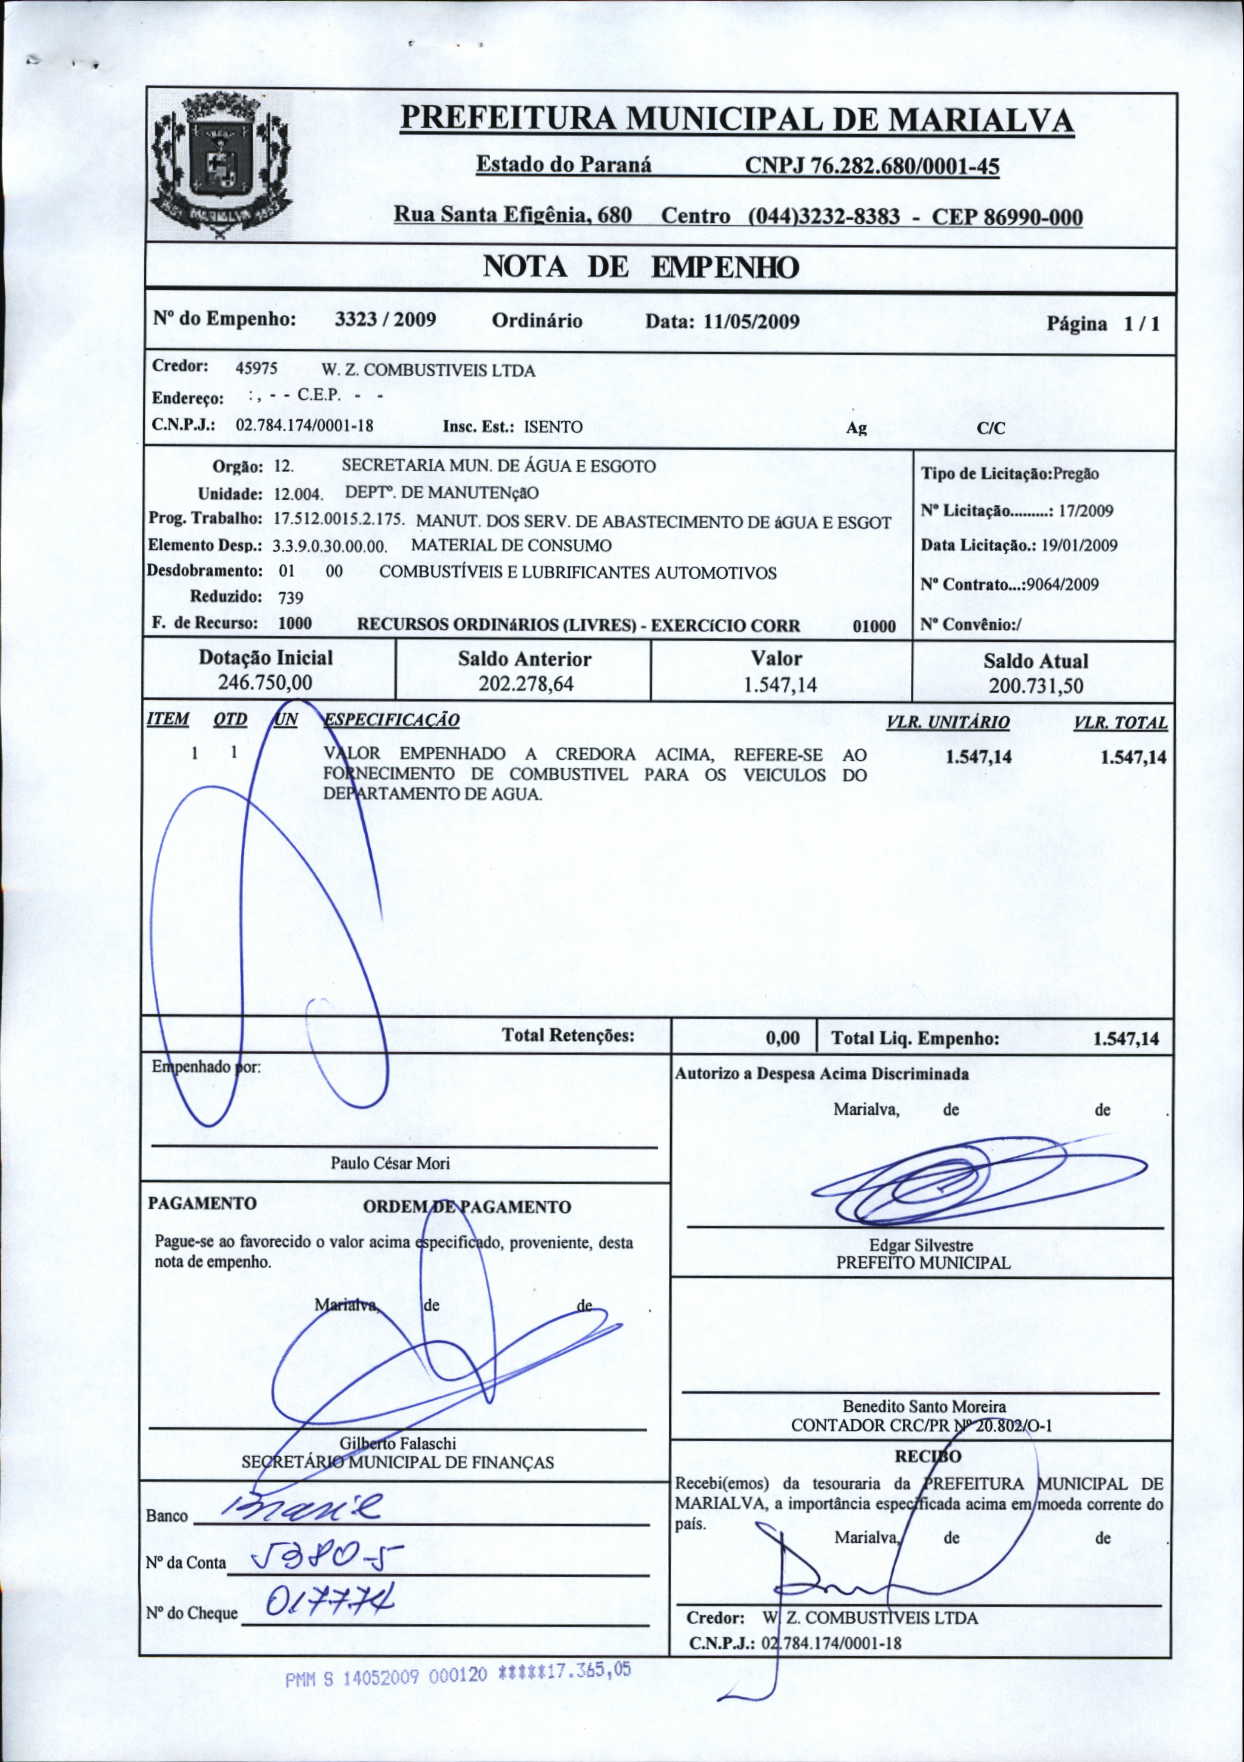 PREFEITURA MUNICIPAL DE MARIALVA
Estado do Paraná CNPJ 76.282.680/0001-45
Rua Santa Efigênia, 680 Centro (044)3232-8383 - CEP 86990-000
MARIALVA
NOTA DE EMPENHO
Nº do Empenho: 3323 / 2009 Ordinário Data: 11/05/2009 Página 1 / 1
Credor: 45975 W. Z. COMBUSTIVEIS LTDA
Endereço: : , - - C.E.P. - -
C.N.P.J.: 02.784.174/0001-18 Insc. Est.: ISENTO Ag C/C
Orgão: 12. SECRETARIA MUN. DE ÁGUA E ESGOTO
Unidade: 12.004. DEPTº. DE MANUTENçãO
Prog. Trabalho: 17.512.0015.2.175. MANUT. DOS SERV. DE ABASTECIMENTO DE áGUA E ESGOT
Elemento Desp.: 3.3.9.0.30.00.00. MATERIAL DE CONSUMO
Desdobramento: 01 00 COMBUSTÍVEIS E LUBRIFICANTES AUTOMOTIVOS
Reduzido: 739
F. de Recurso: 1000 RECURSOS ORDINáRIOS (LIVRES) - EXERCíCIO CORR 01000
Tipo de Licitação:Pregão
Nº Licitação.........: 17/2009
Data Licitação.: 19/01/2009
Nº Contrato...:9064/2009
Nº Convênio:/
Dotação Inicial Saldo Anterior Valor Saldo Atual
246.750,00 202.278,64 1.547,14 200.731,50
ITEM QTD UN ESPECIFICAÇÃO VLR. UNITÁRIO VLR. TOTAL
1 1 VALOR EMPENHADO A CREDORA ACIMA, REFERE-SE AO 1.547,14 1.547,14
FORNECIMENTO DE COMBUSTIVEL PARA OS VEICULOS DO
DEPARTAMENTO DE AGUA.
Total Retenções: 0,00 Total Liq. Empenho: 1.547,14
Empenhado por:
Paulo César Mori
Autorizo a Despesa Acima Discriminada
Marialva, de de .
Edgar Silvestre
PREFEITO MUNICIPAL
PAGAMENTO ORDEM DE PAGAMENTO
Pague-se ao favorecido o valor acima especificado, proveniente, desta
nota de empenho.
Marialva, de de .
Gilberto Falaschi
SECRETÁRIO MUNICIPAL DE FINANÇAS
Benedito Santo Moreira
CONTADOR CRC/PR Nº 20.802/O-1
Banco Brasil
Nº da Conta 5380-5
Nº do Cheque 017774
RECIBO
Recebi(emos) da tesouraria da PREFEITURA MUNICIPAL DE
MARIALVA, a importância especificada acima em moeda corrente do
país.
Marialva, de de .
Credor: W. Z. COMBUSTIVEIS LTDA
C.N.P.J.: 02.784.174/0001-18
PMM S 14052009 000120 *****17.365,05